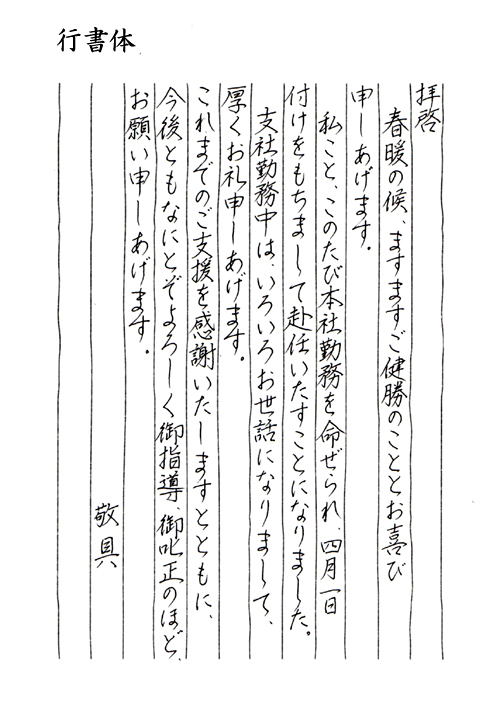 行書体
拝啓
春暖の候、ますますご健勝のこととお喜び
申しあげます。
私こと、このたび本社勤務を命ぜられ、四月一日
付けをもちまして赴任いたすことになりました。
支社勤務中は、いろいろお世話になりまして、
厚くお礼申しあげます。
これまでのご支援を感謝いたしますとともに、
今後ともなにとぞよろしく御指導、御叱正のほど、
お願い申しあげます。
敬具